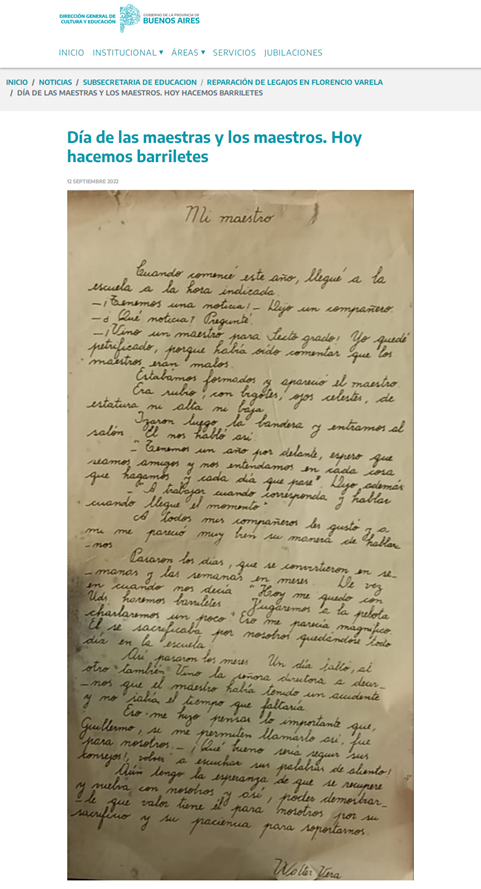 DIRECCIÓN GENERAL DE
CULTURA Y EDUCACIÓN
GOBIERNO DE LA PROVINCIA DE
BUENOS AIRES
INICIO INSTITUCIONAL ▾ ÁREAS ▾ SERVICIOS JUBILACIONES
INICIO / NOTICIAS / SUBSECRETARIA DE EDUCACION / REPARACIÓN DE LEGAJOS EN FLORENCIO VARELA
/ DÍA DE LAS MAESTRAS Y LOS MAESTROS. HOY HACEMOS BARRILETES
Día de las maestras y los maestros. Hoy
hacemos barriletes
12 SEPTIEMBRE 2022
Mi maestro
Cuando comencé este año, llegué a la
escuela a la hora indicada.
—¡Tenemos una noticia!— Dijo un compañero.
—¿Qué noticia? Pregunté
—¡Vino un maestro para sexto grado! Yo quedé
petrificado, porque había oído comentar que los
maestros eran malos.
Estábamos formados y apareció el maestro.
Era rubio, con bigotes, ojos celestes, de
estatura ni alta ni baja.
Izaron luego la bandera y entramos al
salón. El nos habló así:
—"Tenemos un año por delante, espero que
seamos amigos y nos entendamos en cada cosa
que hagamos y cada día que pase". Dijo además
—"A trabajar cuando corresponda y hablar
cuando llegue el momento"
A todos mis compañeros les gustó y a
mi me pareció muy bien su manera de hablar-
-nos.
Pasaron los días, que se convirtieron en se-
-manas y las semanas en meses. De vez
en cuando nos decía "Hoy me quedo con
Uds, haremos barriletes. Jugaremos a la pelota
charlaremos un poco" Eso me parecía magnífico
El se sacrificaba por nosotros quedándose todo
día en la escuela.
Así pasaron los meses. Un día faltó, al
otro también. Vino la señora directora a decir-
-nos que el maestro había tenido un accidente
y no sabía el tiempo que faltaría.
Eso me hizo pensar lo importante que,
Guillermo, si me permiten llamarlo así, fue
para nosotros.—¡Qué bueno sería seguir sus
consejos!, volver a escuchar sus palabras de aliento!
Aún tengo la esperanza de que se recupere
y vuelva con nosotros y así, poder demostrar-
-le que valor tiene él para nosotros por su
sacrificio y su paciencia para soportarnos.
Walter Vera